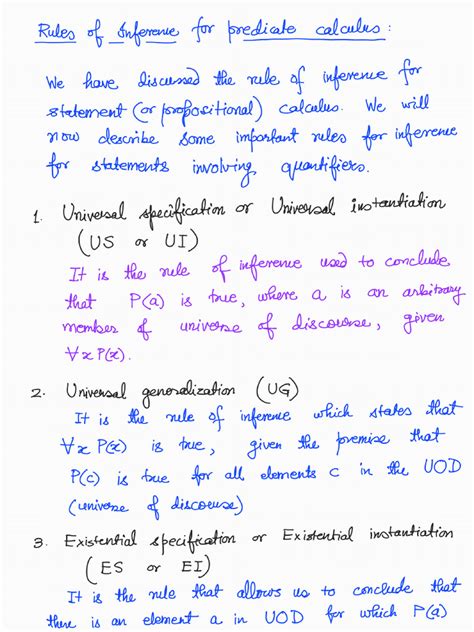 Rules of Inference for predicate calculus :
We have discussed the rule of inference for
statement (or propositional) calculus. We will
now describe some important rules for inference
for statements involving quantifiers.
1. Universal specification or Universal instantiation
(US or UI)
It is the rule of inference used to conclude
that P(a) is true, where a is an arbitrary
member of universe of discourse, given
∀x P(x).
2. Universal generalization (UG)
It is the rule of inference which states that
∀x P(x) is true, given the premise that
P(c) is true for all elements c in the UOD
(universe of discourse)
3. Existential specification or Existential instantiation
(ES or EI)
It is the rule that allows us to conclude that
there is an element a in UOD for which P(a)